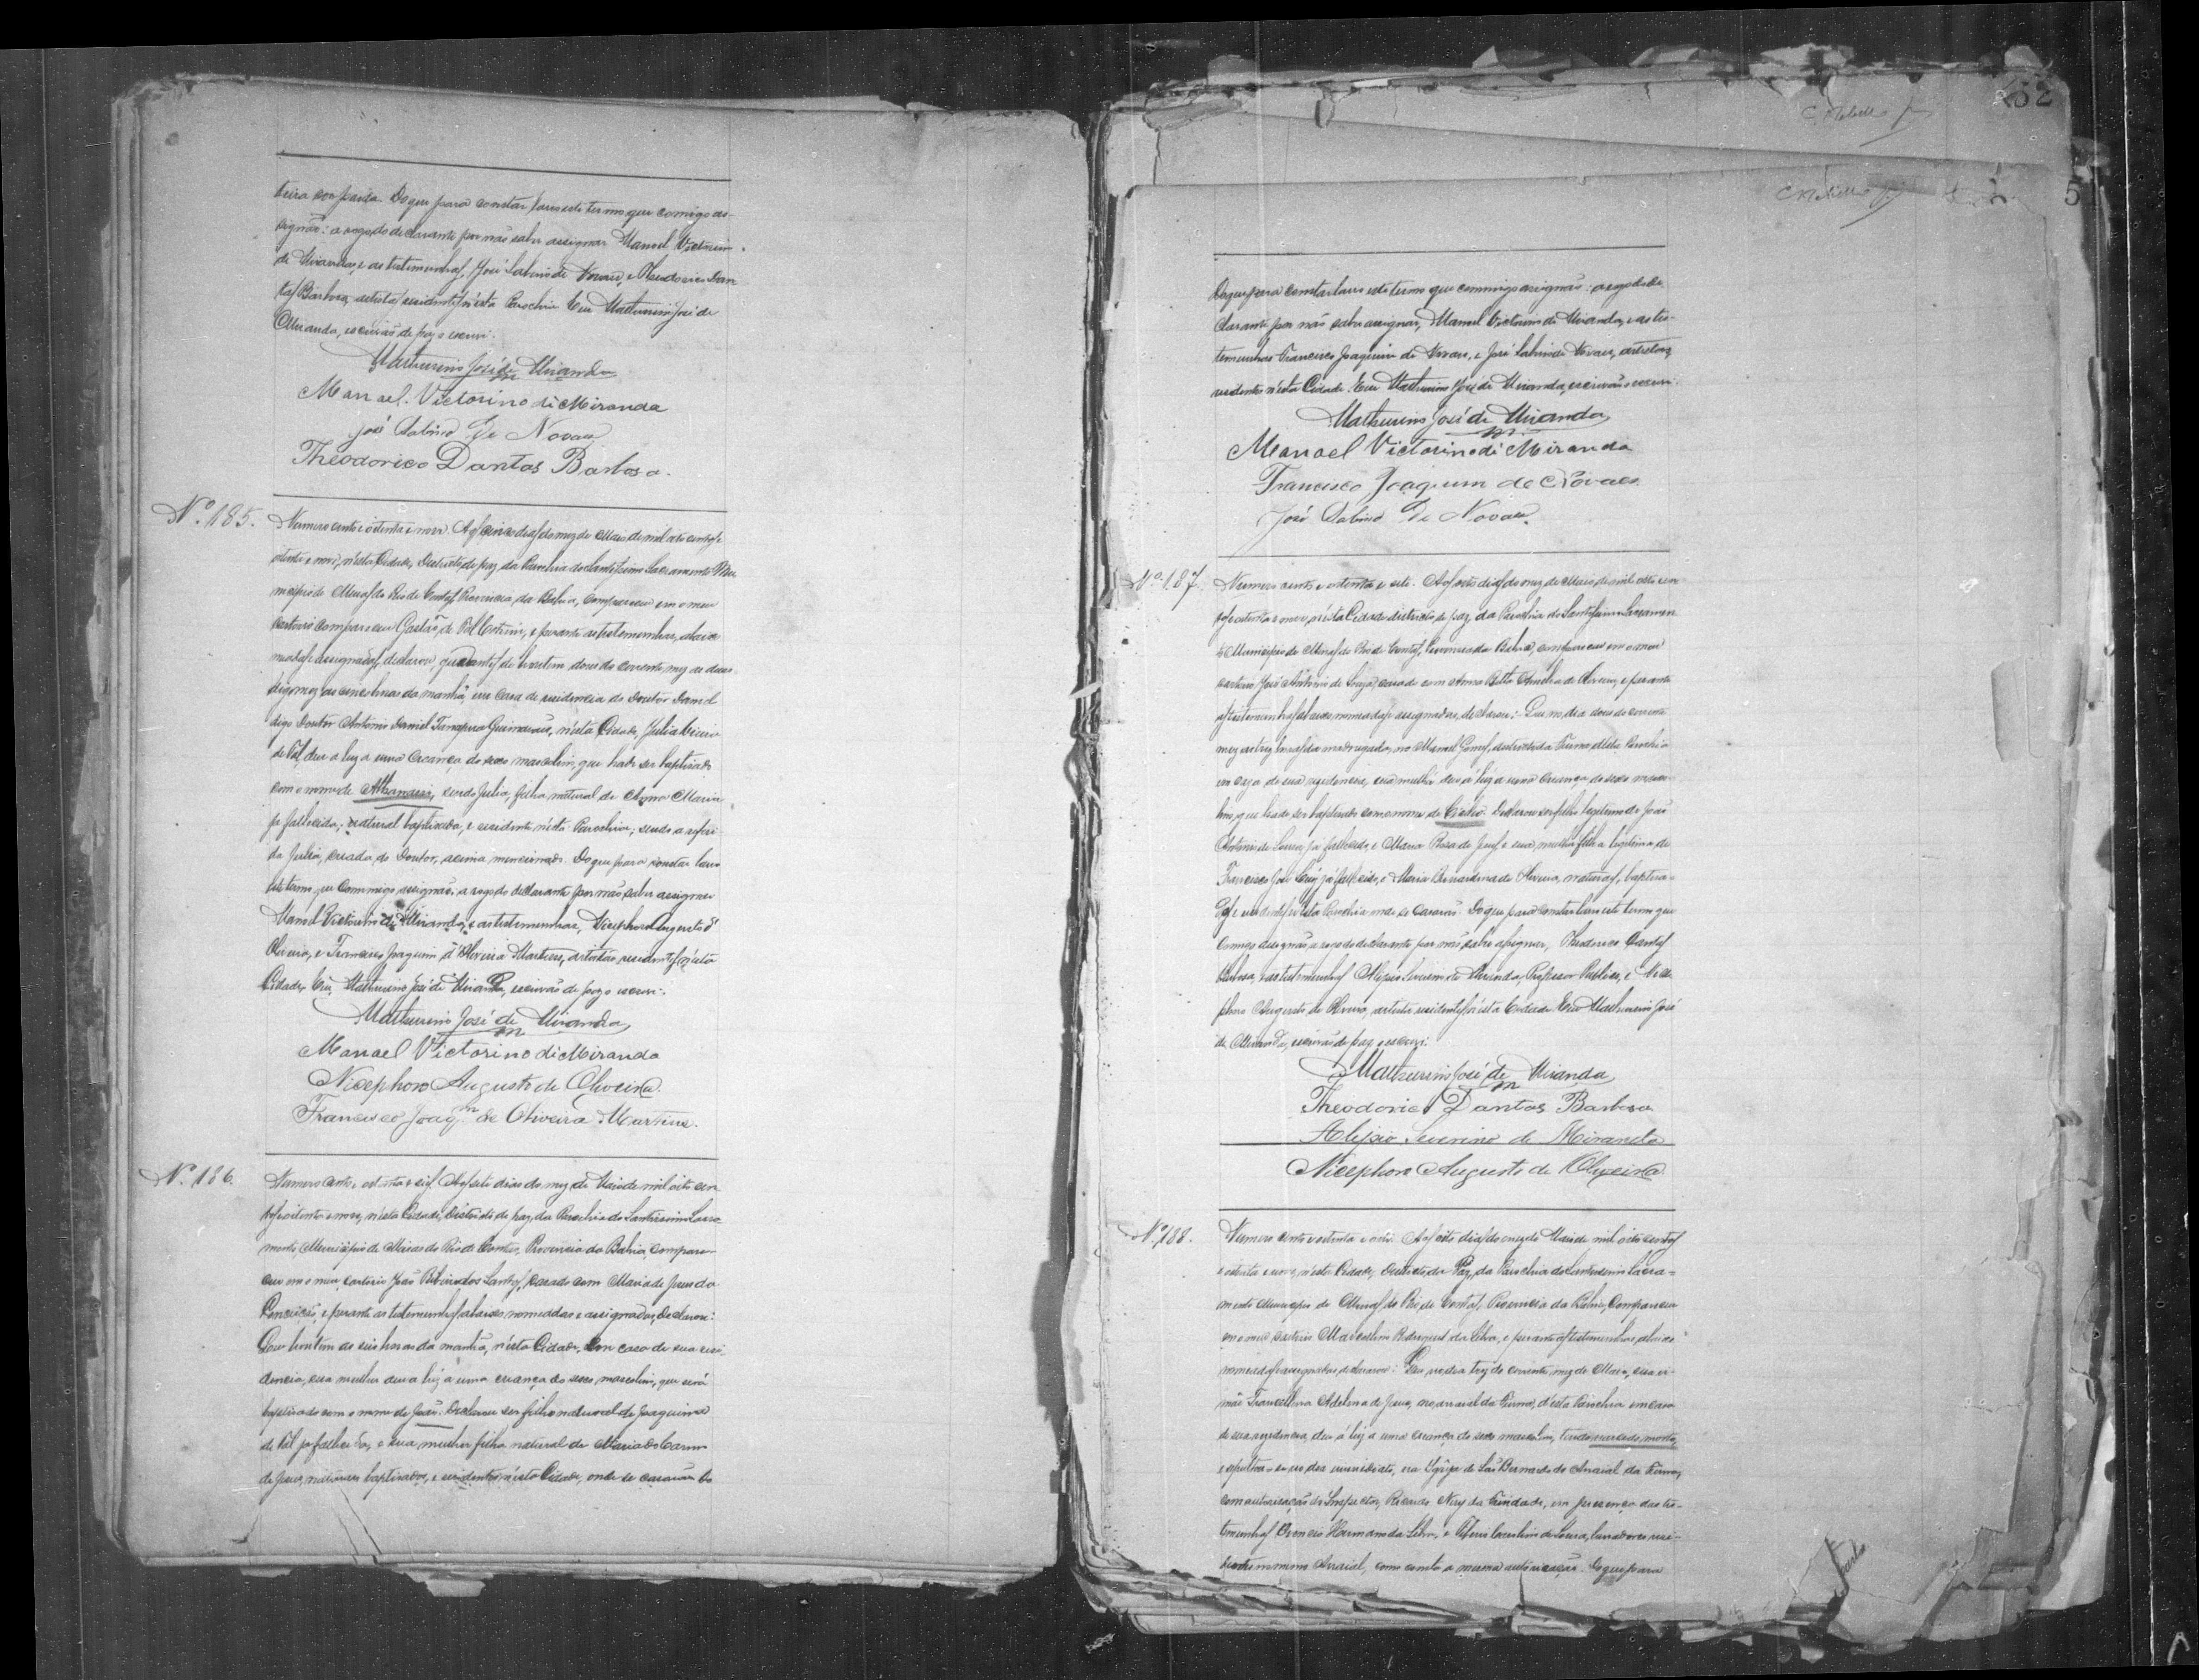 teira com parda. Do que para constar lavro este termo que comigo as-
signão: a rogo do declarante por não saber assignar Manoel Victorino
de Miranda, e as testemunhas, José Sabino de Novaes, e Theodorico Dan
tas Barbosa, artistas residentes n'esta Parochia. Eu Mathurino José de
Miranda, escrivão de paz o escrevi.
Mathurino José de Miranda
Manoel Victorino de Miranda
José Sabino de Novaes
Theodorico Dantas Barbosa.
Nº 185.
Numero cento e oitenta e nove. Aos cinco dias do mez de Maio de mil oito centos e
oitenta e nove, n'esta Cidade, Districto de paz da Parochia do Santissimo Sacramento Mu
nicipio de Minas do Rio de Contas, Provincia da Bahia, compareceu em o meu
cartorio compareceu Gastão de Tal Cotrim, e perante as testemunhas, abaixo
nomeadas e assignadas, declarou, que antes de hontem dous do corrente mez as duas
digo mez, as cinco horas da manhã, em casa de residencia do Doutor Daniel
digo Doutor Antonio Daniel Guimarães, n'esta Cidade, Julia
de Tal, deu a luz a uma creança do sexo masculino, que hade ser baptisado
com o nome de sendo Julia, filha natural de Anna Maria
ja fallecida; natural baptisada, e residente n'esta Parochia; sendo a referi
da Julia, creada do Doutor, acima mencionado. Do que para constar lavro
este termo, que commigo assignão; a rogo do declarante por não saber assignar
Manoel Victorino de Miranda, e as testemunhas, Nicephoro Augusto d'
Oliveira, e Francisco Joaquim d'Oliveira Martins, artistas residentes n'esta
Cidade. Eu, Mathurino José de Miranda, escrivão de paz o escrevi.
Mathurino José de Miranda
Manoel Victorino de Miranda
Nicephoro Augusto de Oliveira.
Francisco Joaqm de Oliveira Martins.
Nº 186.
Numero cento e oitenta e seis. Aos sete dias do mez de Maio de mil oito cen
tos e oitenta e nove, n'esta Cidade, Districto de paz da Parochia do Santissimo Sacra
mento, Municipio de Minas do Rio de Contas, Provincia da Bahia, compare-
ceu em o meu cartorio João Ribeiro dos Santos, casado com Maria de Jesus da
Conceição, e perante as testemunhas abaixo nomeadas e assignadas, declarou:
Que hontem as seis horas da manhã, n'esta Cidade, em casa de sua resi-
dencia, sua mulher deu a luz a uma creança do sexo masculino, que será
baptisado com o nome de João. Declarou ser filho natural de Joaquina
de Tal, ja fallecida, e sua mulher filha natural de Maria do Carmo
de Jesus, naturaes baptisados, e residentes n'esta Cidade, onde se casarão
Do que para constar lavro este termo que commigo assignão: a rogo do de
clarante por não saber assignar, Manoel Victorino de Miranda, e as tes-
temunhas Francisco Joaquim de Novaes, e José Sabino de Novaes, artistas
residentes n'esta Cidade. Eu Mathurino José de Miranda, escrivão o escrevi.
Mathurino José de Miranda
Manoel Victorino de Miranda
Francisco Joaquim de Novaes
José Sabino de Novaes.
Nº 187.
Numero cento e oitenta e sete. Aos oito dias do mez de Maio de mil oito cen
tos e oitenta e nove, n'esta Cidade districto de paz, da Parochia do Santissimo Sacramen
to Municipio de Minas do Rio de Contas, Provincia da Bahia, compareceu em o meu
cartorio José Antonio de Souza, casado com Anna Amelia de Oliveira, e perante
as testemunhas abaixo nomeadas e assignadas, declarou: Que no dia dous do corrente
mez as tres horas da madrugada, no Manoel Gomes, districto da Furna desta Parochia
em casa de sua residencia, sua mulher deu á luz a uma creança do sexo mascu-
lino, que hade ser baptisado com o nome de Declarou ser filho legitimo de João
Antonio de Souza, ja fallecido, e Maria Rosa de Jesus e sua mulher filha legitima de
Francisco José ja fallecido, e Maria Bernardina de Oliveira, naturaes, baptisa-
dos e residentes n'esta Parochia onde se casarão. Do que para constar lavro este termo que
comigo assignão a rogo do declarante por não saber assignar, Theodorico Dantas
Barbosa, e as testemunhas Alipio Severino de Miranda, Professor Publico, e Nice
phoro Augusto de Oliveira, artista residentes n'esta Cidade. Eu Mathurino José
de Miranda, escrivão de paz o escrevi.
Mathurino José de Miranda
Theodorico Dantas Barbosa
Alipio Severino de Miranda
Nicephoro Augusto de Oliveira
Nº 188.
Numero cento e oitenta e oito. Aos oito dias do mez de Maio de mil oito centos
e oitenta e nove, n'esta Cidade, Districto da Paz, da Parochia do Santissimo Sacra-
mento Municipio de Minas do Rio de Contas, Provincia da Bahia, Compareceu
em o meu cartorio Marcellino Rodrigues da Silva, e perante as testemunhas, abaixo
nomeadas e assignadas, declarou: Que no dia trez do corrente mez de Maio, sua ir-
mãe Francellina Adelina de Jesus, no arraial da Furna, d'esta Parochia em casa
de sua residencia, deu á luz a uma creança do sexo masculino, tendo nascido morto,
e sepultou-se no dia immediato, na Igreja de São Bernardo do Arraial da Furna,
com autorisação do Inspector, Ricardo Nery da Trindade, em presença das tes-
temunhas Hermano da Silva, e de Souza, lavradores resi-
dentes no mesmo Arraial, como consta a mesma autorisação. Do que para